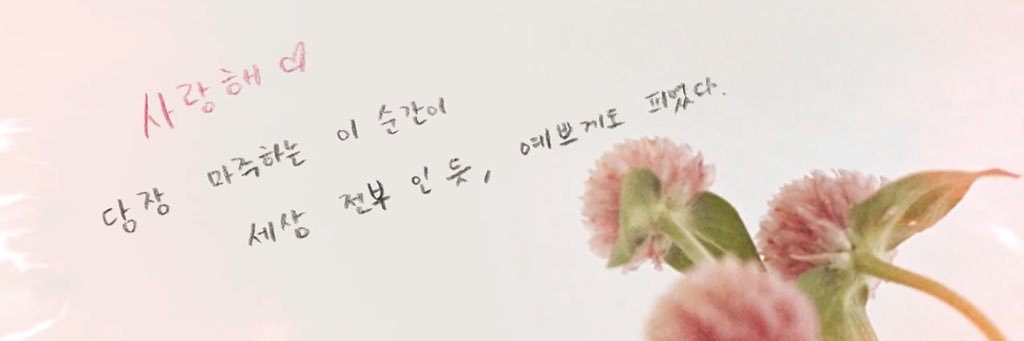 사랑해♡
당장 마주하는 이 순간이
세상 전부 인 듯, 예쁘게도 피었다.